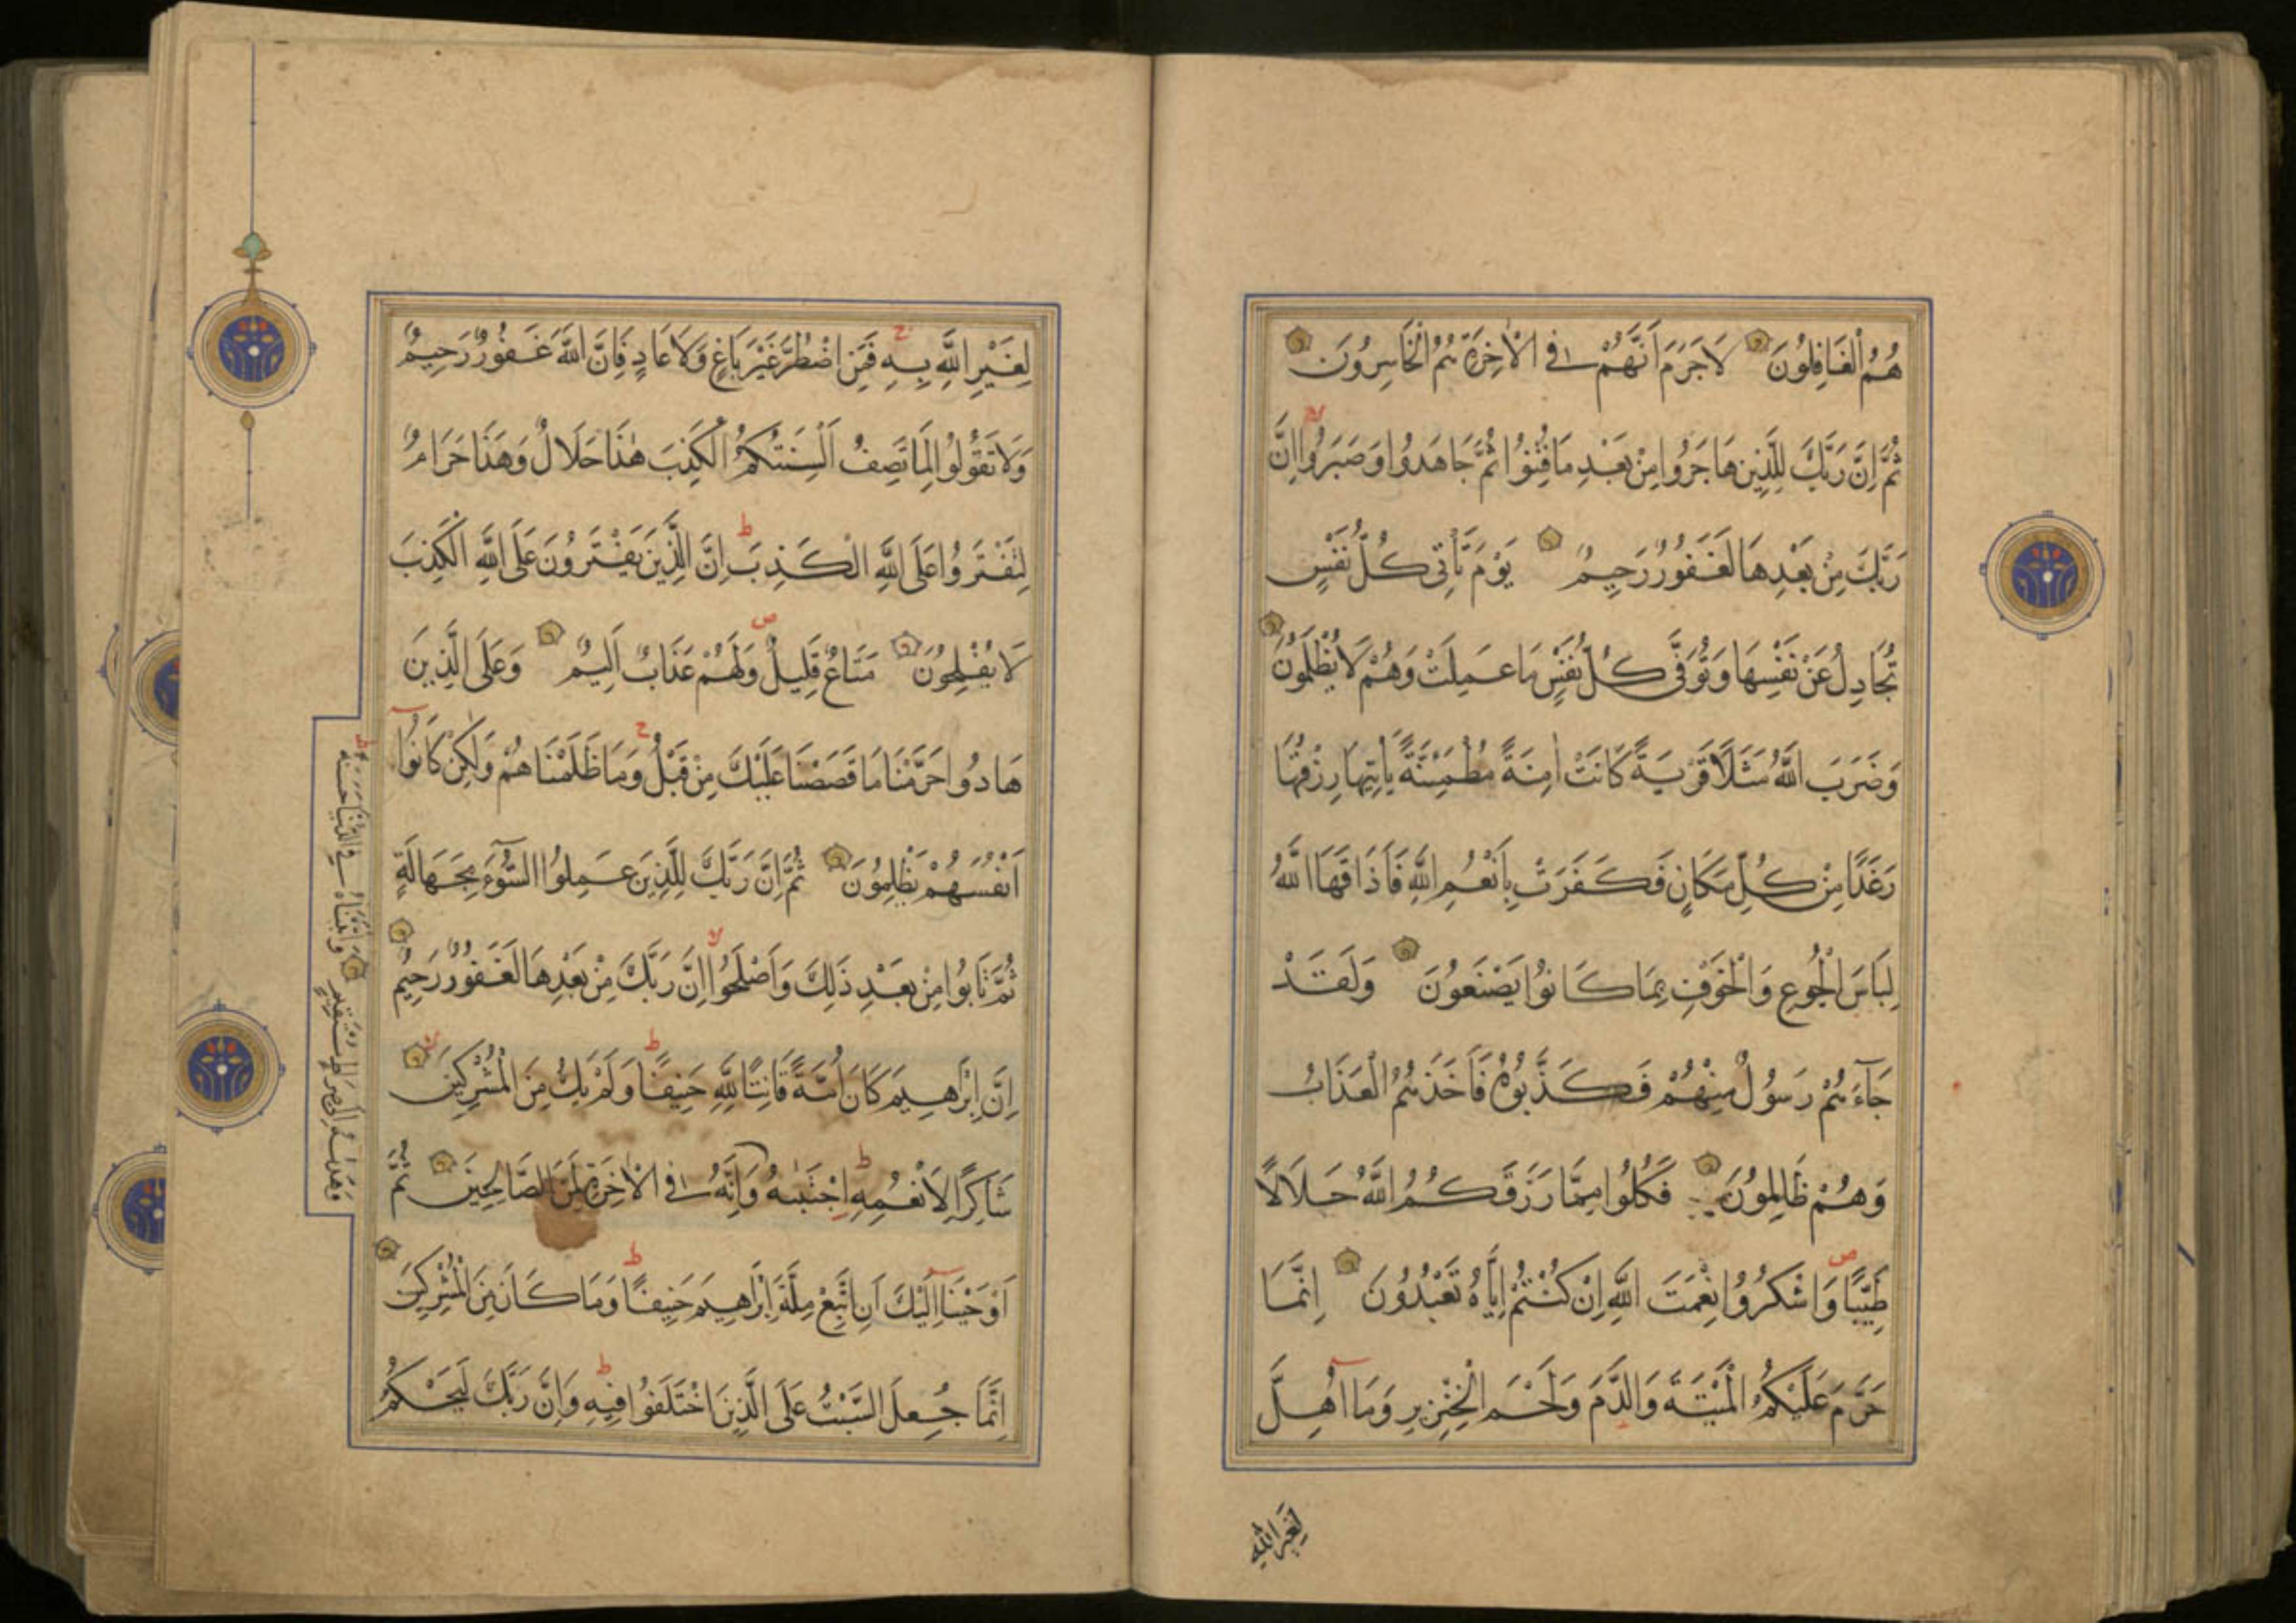 هُمُ الْغَافِلُونَ لَا جَرَمَ اَنَّهُمْ فِى الْاٰخِرَةِ هُمُ الْخَاسِرُونَ
ثُمَّ اِنَّ رَبَّكَ لِلَّذِينَ هَاجَرُوا مِنْ بَعْدِ مَا فُتِنُوا ثُمَّ جَاهَدُوا وَصَبَرُوا لا اِنَّ
رَبَّكَ مِنْ بَعْدِهَا لَغَفُورٌ رَحِيمٌ يَوْمَ تَأْتِى كُلُّ نَفْسٍ
تُجَادِلُ عَنْ نَفْسِهَا وَتُوَفّٰى كُلُّ نَفْسٍ مَا عَمِلَتْ وَهُمْ لَا يُظْلَمُونَ
وَضَرَبَ اللّٰهُ مَثَلًا قَرْيَةً كَانَتْ اٰمِنَةً مُطْمَئِنَّةً يَأْتِيهَا رِزْقُهَا
رَغَدًا مِنْ كُلِّ مَكَانٍ فَكَفَرَتْ بِاَنْعُمِ اللّٰهِ فَاَذَاقَهَا اللّٰهُ
لِبَاسَ الْجُوعِ وَالْخَوْفِ بِمَا كَانُوا يَصْنَعُونَ وَلَقَدْ
جَآءَهُمْ رَسُولٌ مِنْهُمْ فَكَذَّبُوهُ فَاَخَذَهُمُ الْعَذَابُ
وَهُمْ ظَالِمُونَ فَكُلُوا مِمَّا رَزَقَكُمُ اللّٰهُ حَلَالًا
طَيِّبًا ص وَاشْكُرُوا نِعْمَتَ اللّٰهِ اِنْ كُنْتُمْ اِيَّاهُ تَعْبُدُونَ اِنَّمَا
حَرَّمَ عَلَيْكُمُ الْمَيْتَةَ وَالدَّمَ وَلَحْمَ الْخِنْزِيرِ وَمَآ اُهِلَّ
لِغَيْرِ اللّٰهِ
لِغَيْرِ اللّٰهِ بِهِ ج فَمَنِ اضْطُرَّ غَيْرَ بَاغٍ وَلَا عَادٍ فَاِنَّ اللّٰهَ غَفُورٌ رَحِيمٌ
وَلَا تَقُولُوا لِمَا تَصِفُ اَلْسِنَتُكُمُ الْكَذِبَ هٰذَا حَلَالٌ وَهٰذَا حَرَامٌ
لِتَفْتَرُوا عَلَى اللّٰهِ الْكَذِبَ ط اِنَّ الَّذِينَ يَفْتَرُونَ عَلَى اللّٰهِ الْكَذِبَ
لَا يُفْلِحُونَ مَتَاعٌ قَلِيلٌ ص وَلَهُمْ عَذَابٌ اَلِيمٌ وَعَلَى الَّذِينَ
هَادُوا حَرَّمْنَا مَا قَصَصْنَا عَلَيْكَ مِنْ قَبْلُ ج وَمَا ظَلَمْنَاهُمْ وَلٰكِنْ كَانُوٓا
اَنْفُسَهُمْ يَظْلِمُونَ ثُمَّ اِنَّ رَبَّكَ لِلَّذِينَ عَمِلُوا السُّوٓءَ بِجَهَالَةٍ
ثُمَّ تَابُوا مِنْ بَعْدِ ذٰلِكَ وَاَصْلَحُوا لا اِنَّ رَبَّكَ مِنْ بَعْدِهَا لَغَفُورٌ رَحِيمٌ
اِنَّ اِبْرٰهِيمَ كَانَ اُمَّةً قَانِتًا لِلّٰهِ حَنِيفًا ط وَلَمْ يَكُ مِنَ الْمُشْرِكِينَ لا
شَاكِرًا لِاَنْعُمِهِ ط اِجْتَبٰىهُ وَاِنَّهُ فِى الْاٰخِرَةِ لَمِنَ الصَّالِحِينَ ثُمَّ
اَوْحَيْنَآ اِلَيْكَ اَنِ اتَّبِعْ مِلَّةَ اِبْرٰهِيمَ حَنِيفًا ط وَمَا كَانَ مِنَ الْمُشْرِكِينَ
اِنَّمَا جُعِلَ السَّبْتُ عَلَى الَّذِينَ اخْتَلَفُوا فِيهِ ط وَاِنَّ رَبَّكَ لَيَحْكُمُ
وَهَدٰىهُ اِلٰى صِرَاطٍ مُسْتَقِيمٍ وَاٰتَيْنَاهُ فِى الدُّنْيَا حَسَنَةً ط